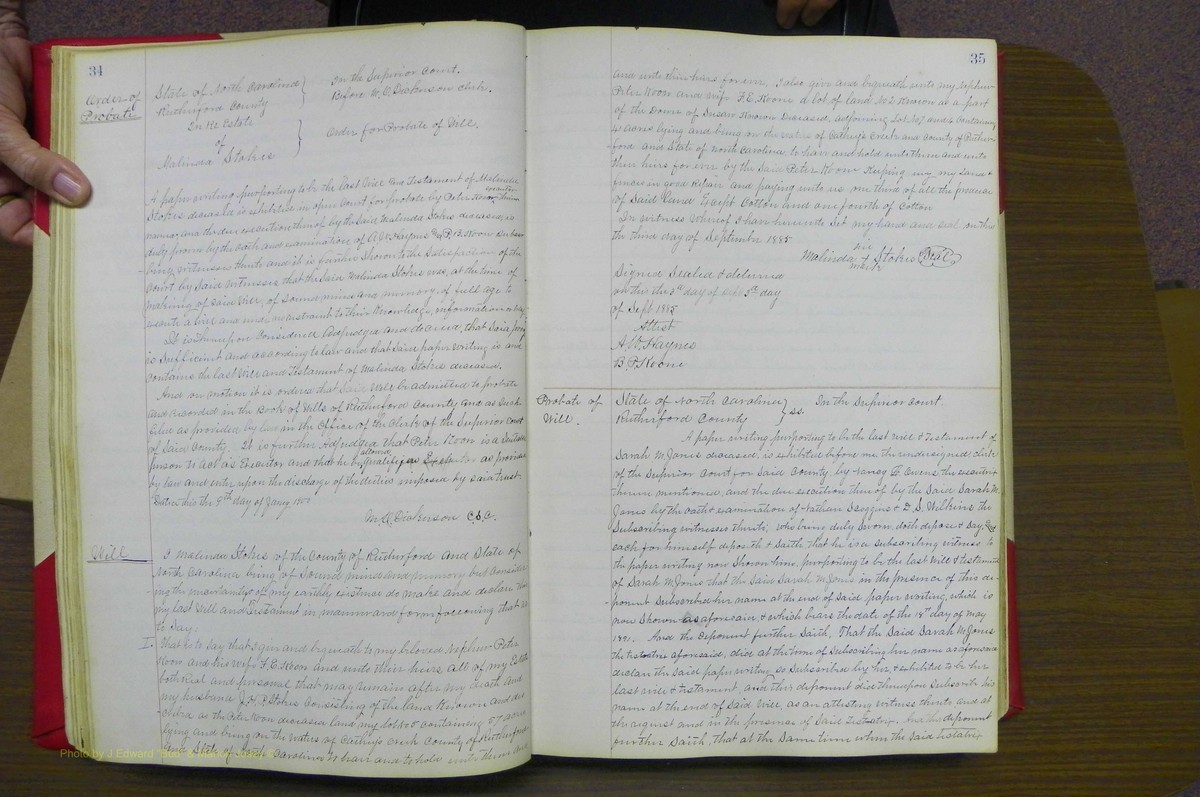 34
Order of
Probate
State of North Carolina
Rutherford County
In Re Estate
of
Malinda Stokes
In the Superior Court.
Before M. O. Dickenson Clerk.
Order for Probate of Will.
A paper writing purporting to be the last Will and Testament of Malinda
Stokes deceased is exhibited in open Court for probate by Peter Koon
executor
therein
named, and the due execution thereof by the said Malinda Stokes deceased, is
duly proven by the oath and examination of A. W. Haynes and P. B. Koon Subscri-
bing witnesses thereto and it is further Shown to the Satisfaction of the
Court by Said Witnesses that the Said Malinda Stokes was, at the time of
making of said Will, of Sound mind and memory, of full age to
execute a will and under no restraint to their Knowledge, information or
It is thereupon Considered Adjudged and decreed, that Said proof
is Sufficient and according to law and that Said paper writing is and
Contains the last Will and Testament of Malinda Stokes deceased.
And on motion it is ordered that Said Will be admitted to probate
and recorded in the Book of Wills of Rutherford County and as Such
filed as provided by law in the Office of the Clerk of the Superior Court
of Said County. It is further Adjudged that Peter Koon is a Suitable
person to Act as Executor and that he be
allowed
qualify as Executor as provided
by law and enter upon the discharge of the duties imposed by said trust.
Dated this the 9th day of Jany
M. O. Dickenson C.S.C.
Will
I Malinda Stokes of the County of Rutherford and State of
North Carolina being of Sound mind and memory but Consider-
ing the uncertainty of my earthly existence do make and declare this
my last Will and Testament in manner and form following that is
to Say.
I. That is to Say that I give and bequeath to my beloved Nephew Peter
Koon and his wife F. E. Koon and unto their heirs all of my Estate
both real and personal that may remains after my death and
my husband J. H. P. Stokes Consisting of the land Known and des-
cribed as the Peter Koon deceased land, my lot No 5 Containing 57 acres
lying and being on the Waters of Cathey's Creek County of Rutherford
State of North Carolina to have and to hold unto them and
Photo by J Edward "Bud" &
35
and unto their heirs for ever, I also give and bequeath unto my Nephew
Peter Koon and wife F. E. Koone a lot of land No 2 Known as a part
of the Dower of Susan Koown Deceased, adjoining Lot No 1 and 4 Containing
acres lying and being on the waters of Cathey's Creek and County of Ruther-
ford and State of North Carolina to have and hold unto them and unto
their heirs for ever by the Said Peter Koon Keeping up my land &
fences in good Repair and paying unto us one third of all the produce
of Said land Except Cotton and one fourth of Cotton
In witness Whereof I have hereunto Set my hand and seal on this
the third day of September 1885
his
Malinda X Stokes (Seal)
mark
Signed Sealed & delivered
on this the 3rd day of Sept 3rd day
of Sept 1885
Attest
A. W. Haynes
B. P. Koone
Probate of
Will.
State of North Carolina
Rutherford County
ss.
In the Superior Court.
A paper writing purporting to be the last Will & Testament of
Sarah M. Jones deceased, is exhibited before me the undersigned, Clerk
of the Superior Court for Said County, by Nancy E. Owens the executrix
therein mentioned, and the due execution thereof by the Said Sarah M.
Jones by the oath & examination of Nathan Scoggins & D. S. Wilkins the
Subscribing witnesses thereto; who being duly Sworn, doth depose & Say, and
each for himself deposeth & Saith, that he is a subscribing witness to
the paper writing now Shown him, purporting to be the last Will & testament
of Sarah M. Jones that the Said Sarah M. Jones in the presence of this de-
ponent Subscribed her name at the end of Said paper writing, which is
now Shown as aforesaid, & which bears the date of the 18th day of May
1891. And the deponent further Saith, That the Said Sarah M. Jones
the testatrix aforesaid, did at the time of Subscribing her name as aforesaid
declare the said paper writing so Subscribed by her, & exhibited to be her
last will & testament, and this deponent did thereupon Subscribe his
name at the end of Said Will, as an attesting witness thereto and at
the request and in the presence of Said Testatrix. And this deponent
further Saith, that at the Same time when the Said testatrix